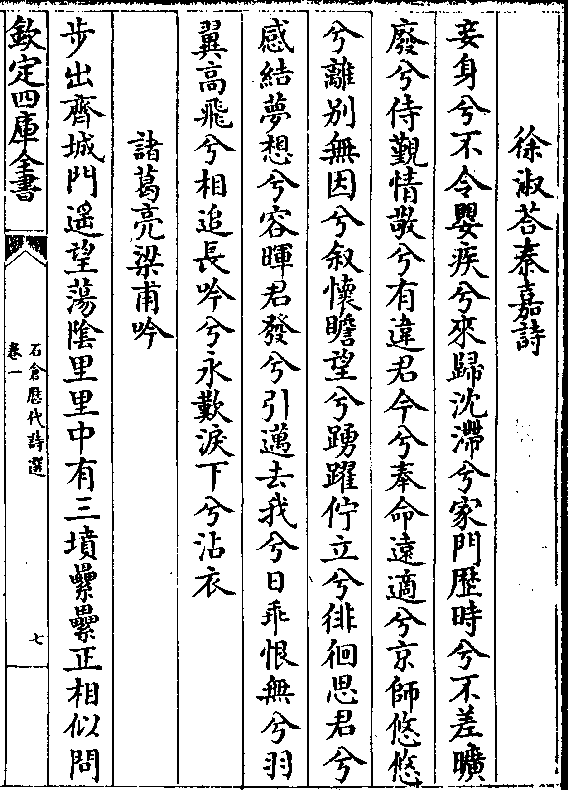 徐淑荅秦嘉詩
妾身兮不令嬰疾兮來歸沈滯兮家門歴時兮不差曠
廢兮侍覲情敬兮有違君今兮奉命遠適兮京師悠悠
兮離別無因兮叙懷瞻望兮踴躍佇立兮徘徊思君兮
感結夢想兮容暉君發兮引邁去我兮日乖恨無兮羽
翼高飛兮相追長吟兮永歎淚下兮沾衣
諸葛亮梁甫吟
步出齊城門遥望蕩陰里里中有三墳纍纍正相似問
欽定四庫全書
石倉歴代詩選
卷一
七